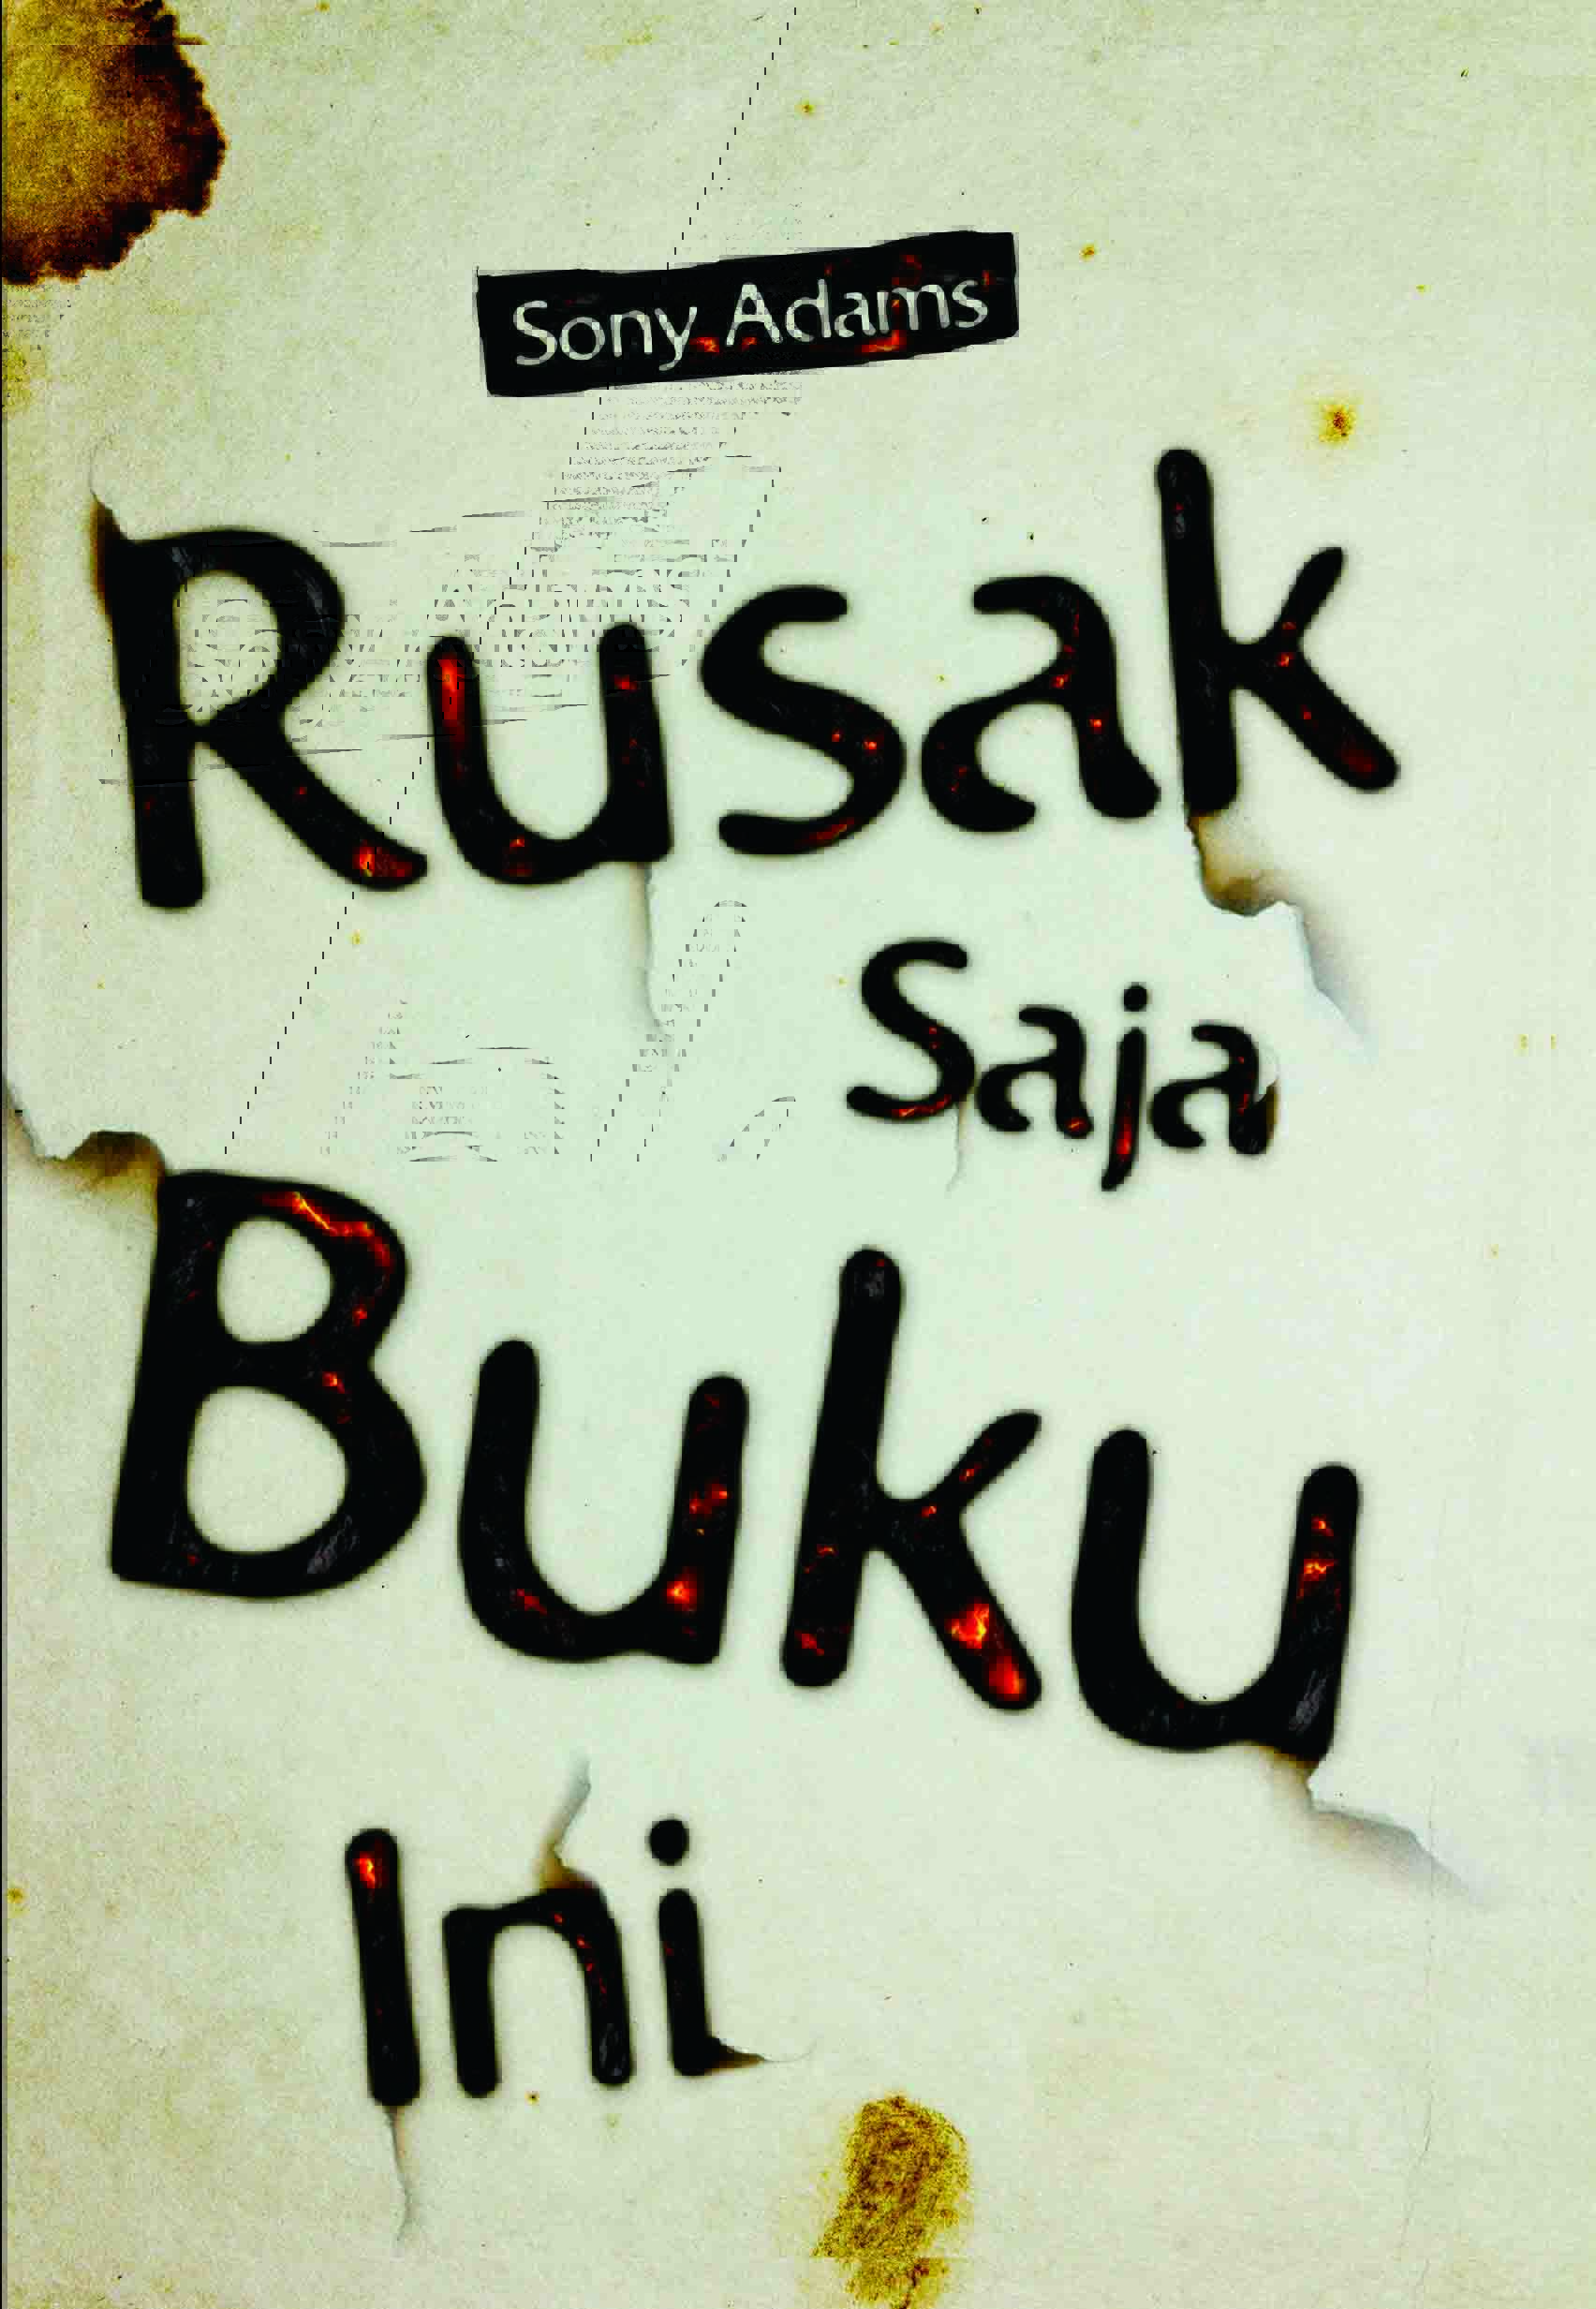 Sony Adams
Rusak
Saja
Buku
Ini